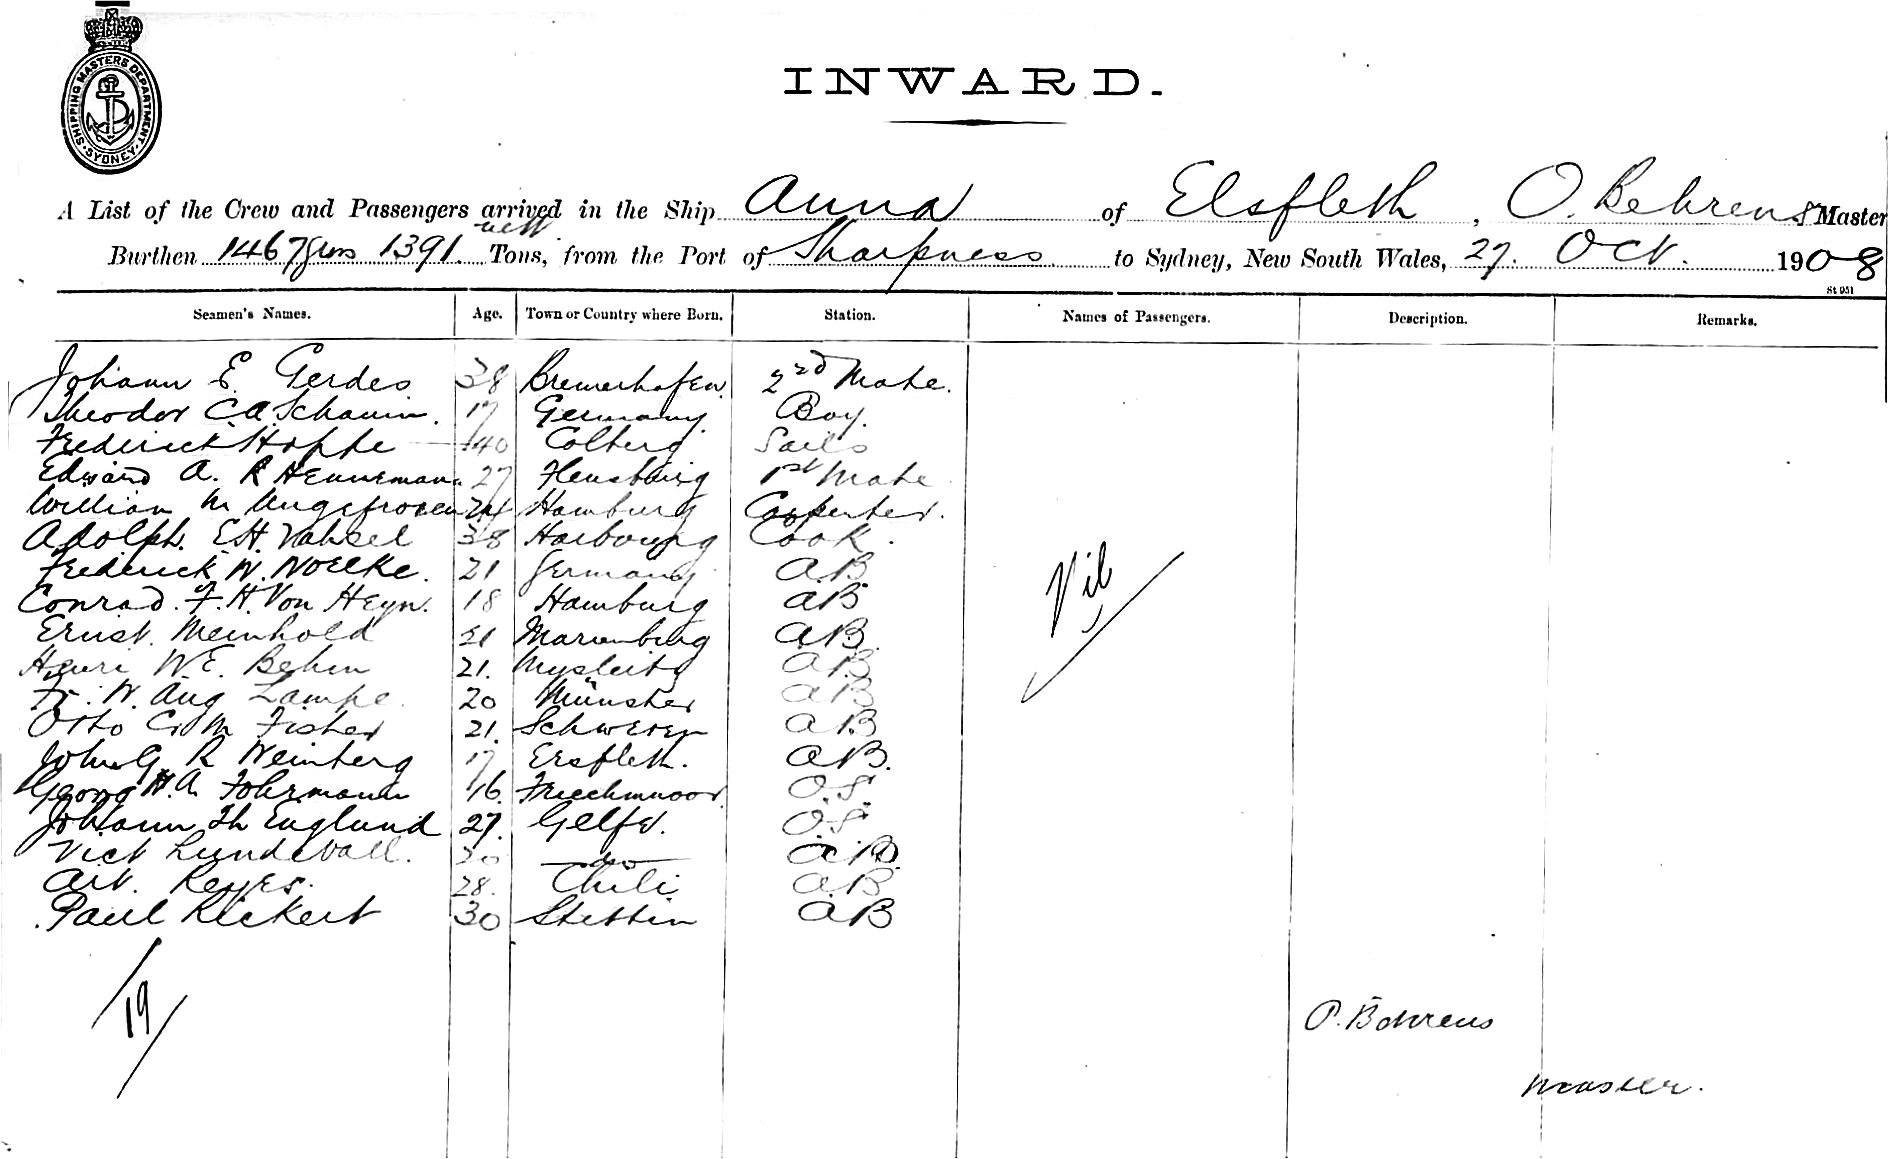 SHIPPING MASTERS DEPARTMENT · SYDNEY ·
INWARD.
A List of the Crew and Passengers arrived in the Ship Anna of Elsfleth, O. Behrens Master
Burthen 1467 grss 1391 nett Tons, from the Port of Sharpness to Sydney, New South Wales, 27. Oct. 1908
St 951
Seamen's Names. Age. Town or Country where Born. Station. Names of Passengers. Description. Remarks.
Johann E. Gerdes 38 Bremerhafen 2nd Mate.
Theodor C.A. Schaum. 17 Germany. Boy.
Frederick Hoppe 40 Colberg Sails
Edward A. R Henneman 27 Flensburg 1st Mate
William M 24 Hamburg Carpenter.
Adolph. E.H. 38 Harbourg Cook.
Frederick W. Noelke. 21 Germany A.B.
Conrad. F. H. Von Heyn. 18 Hamburg AB
Ernst. Meinhold 21 Marienburg A.B.
Henri W.E. Behm 21. A.B.
Fr. W. Aug Lampe 20 Münster AB
Otto C. M Fisher 21. Schweren A B
John G R Weinberg 17 Ersfleth. A B.
Georg H. A Fohrmann 16. O.S
Johann Th Englund 27. Gelfe. O.S
Vict Lundvall. 20 do A.B.
Art. Reyes. 28. Chili A.B
Paul Rickert 30 Stettin A B
Nil
19
P. Behrens
Master.